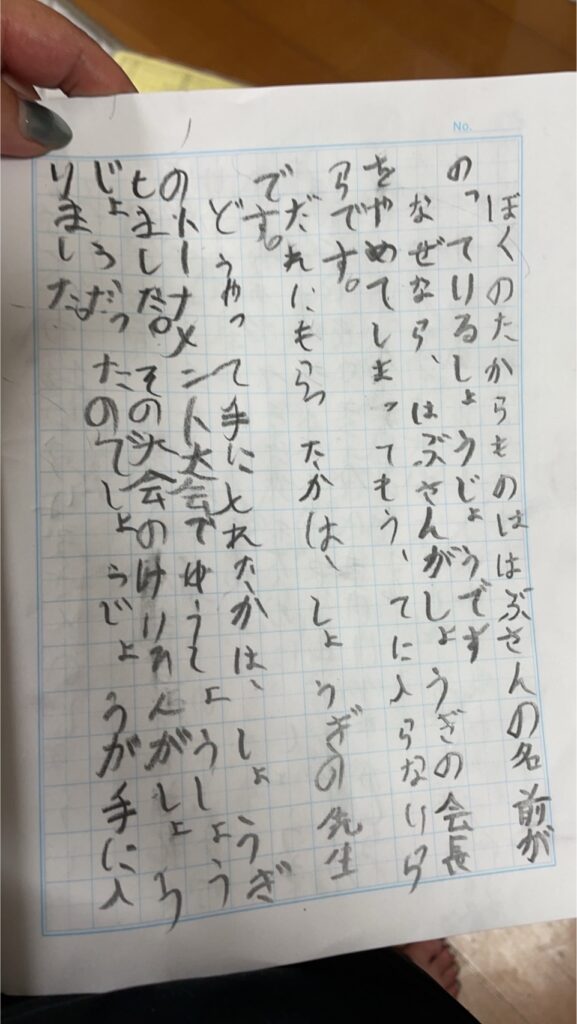 ぼくのたからものははぶさんの名前が
のっているしょうじょうです
なぜなら、はぶさんがしょうぎの会長
をやめてしまってもう、てに入らないか
らです。
だれにもらったかは、しょうぎの先生
です。
どうやって手にとれたかは、しょうぎ
のトーナメント大会でゆうしょうしょう
しました。その大会のけいひんがしょう
じょうだったのでしょうじょうが手に入
りました。
No.